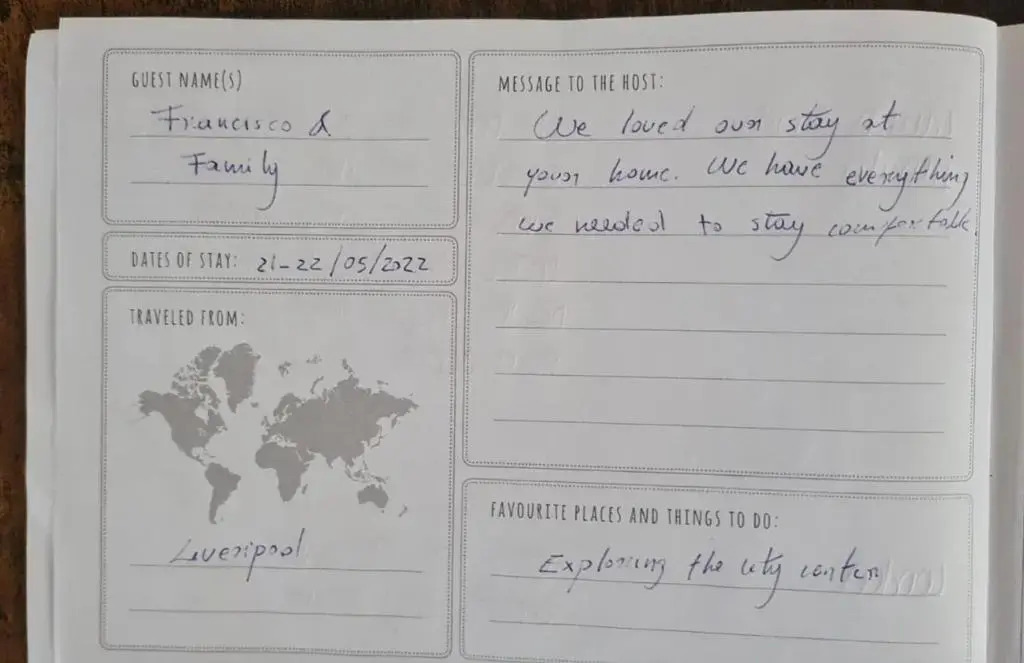 GUEST NAME(S)
Francisco &
Family
DATES OF STAY: 21-22/05/2022
TRAVELED FROM:
Liverpool
MESSAGE TO THE HOST:
We loved our stay at
your home. We have everything
we needed to stay comfortable.
FAVOURITE PLACES AND THINGS TO DO:
Exploring the city center